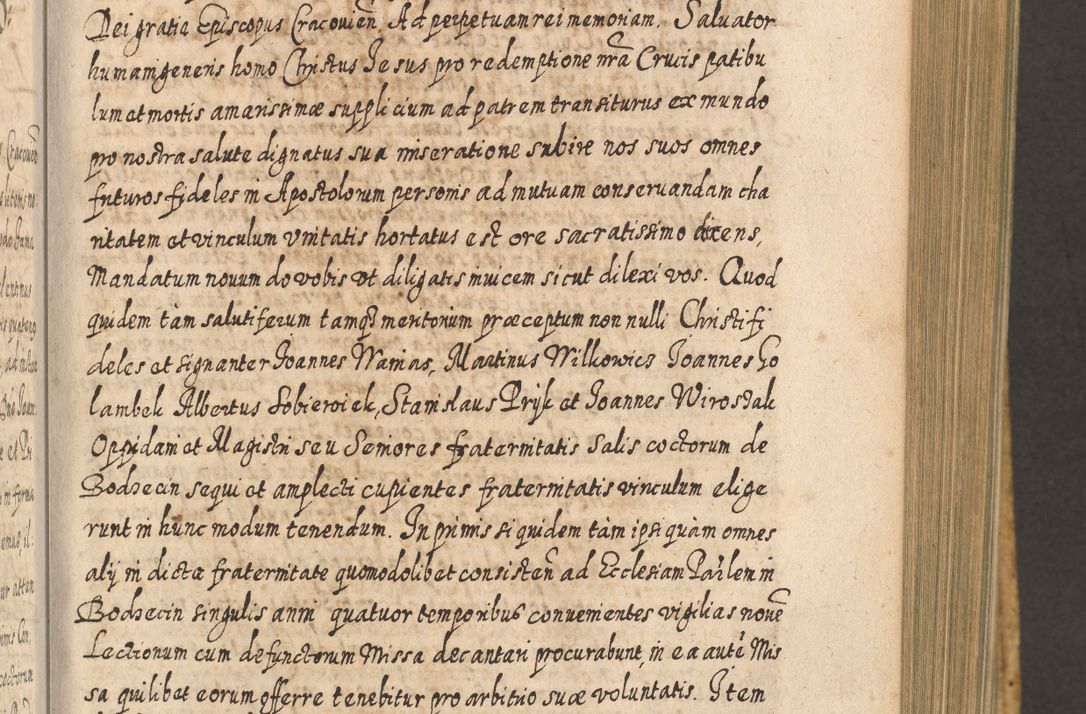 Dei gratia Episcopus Cracovien̄. Ad perpetuam rei memoriam. Salvator
humani generis homo Christus Iesus pro redemptione nr̄a Crucis patibu
lum et mortis amarissimæ supplicium ad patrem transiturus ex mundo
pro nostra salute dignatus sua miseratione subire nos suos omnes
futuros fideles in Apostolorum personis ad mutuam conservandam cha
ritatem et vinculum unitatis hortatus est ore sacratissimo dicens,
Mandatum novum do vobis ut diligatis invicem sicut dilexi vos. Quod
quidem tàm salutiferum tamq̄ meritorium præceptum non nulli Christifi
deles et signanter Joannes Warias, Martinus Wilkowics Joannes Go
lambek Albertus Sobierviek, Stanislaus Pryk et Joannes Wirostak
Oppidani et Magistri seu Seniores fraternitatis Salis coctorum de
Bodzecin sequi et amplecti cupientes fraternitatis vinculum elige
runt in hunc modum tenendum. In primis siquidem tàm ipsi quàm omnes
alij in dictæ fraternitate quomodolibet consisten̄ ad Ecclesiam Par̄lem in
Bodzecin singulis anni quatuor temporibus convenientes vigilias novē
Lectionum cum defunctorum Missa decantari procurabunt, in ea autē Mis
sa quilibet eorum offerre tenebitur pro arbitrio suæ voluntatis. Item